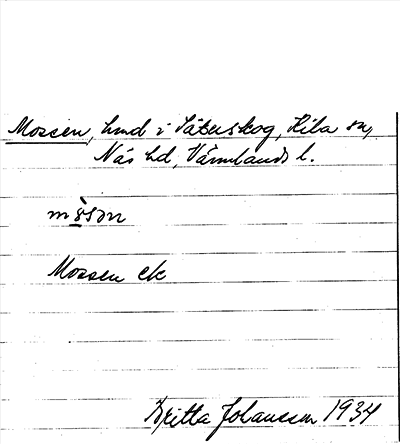 Mossen, hmd i Säterskog, Kila sn,
Näs hd, Värmlands l.
Mossen ek
Britta Johansson 1934